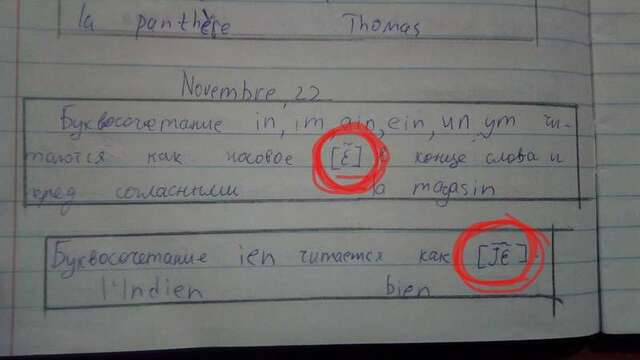 la panthère Thomas
Novembre, 22
Буквосочетание in, im, ain, ein, un, ym чи-
таются как носовое [ɛ̃] в конце слова и
перед согласными la magasin
Буквосочетание ien читается как [jɛ̃].
l'Indien bien